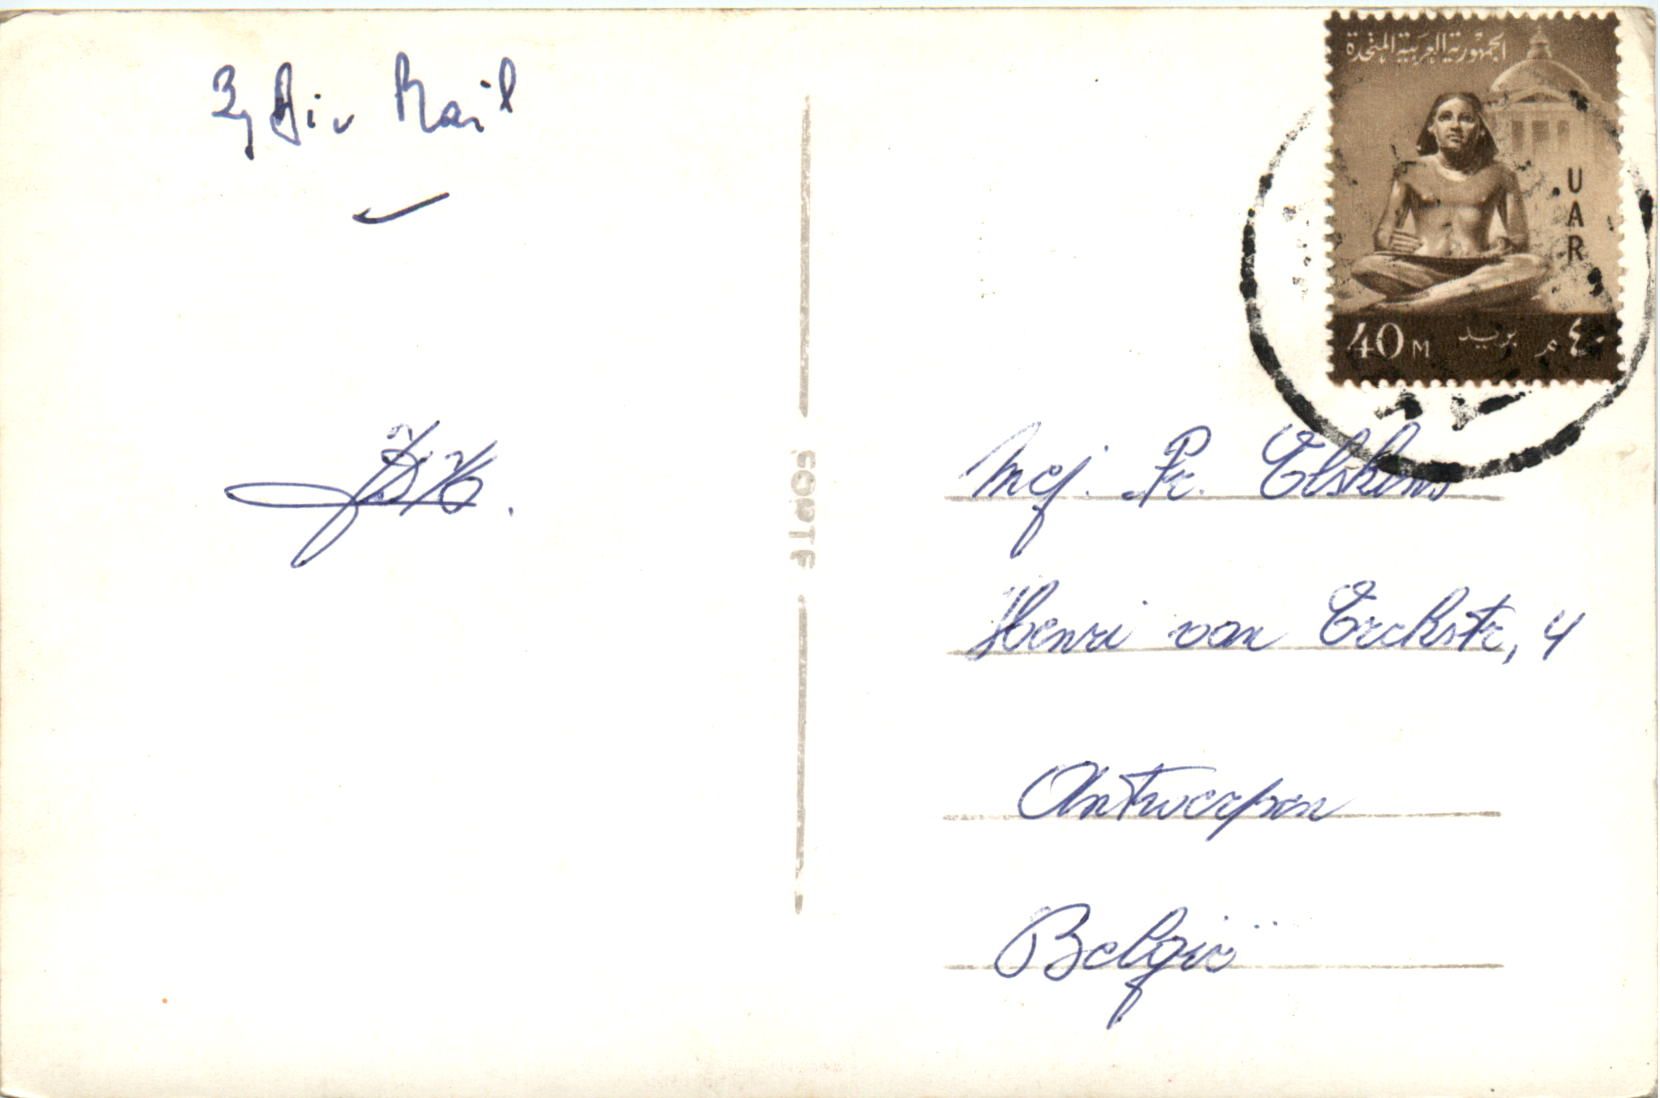 By Air Mail
الجمهورية العربية المتحدة
UAR
40 M بريد ٤٠ م
EGYPTE
Mej. Fr. Elskens
Henri van Erckstr, 4
Antwerpen
België